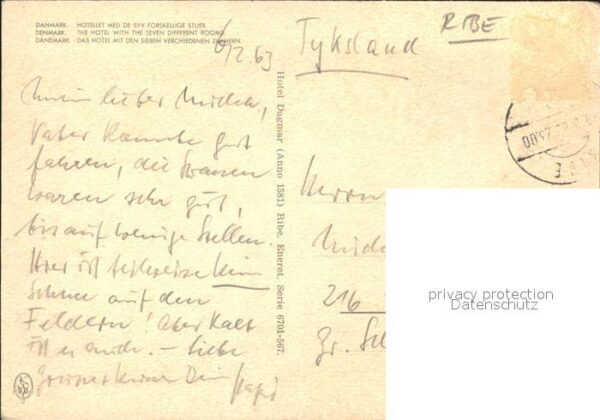 DANMARK. HOTELLET MED DE SYV FORSKELLIGE STUER.
DENMARK. THE HOTEL WITH THE SEVEN DIFFERENT ROOMS.
DANEMARK. DAS HOTEL MIT DEN SIEBEN VERCHIEDENEN ZIMMERN.
6/2.63
Tyksland
RIBE
Mein lieber
Vater konnte gut
fahren, die Strassen
waren sehr gut,
bis auf wenige Stellen.
Hier ist teilweise kein
Schnee auf den
Feldern! Aber kalt
ist es auch. – Liebe
Dein Papi
Hotel Dagmar (Anno 1581) Ribe. Eneret. Serie 6701-567.
Herrn
216
Gr.
privacy protection
Datenschutz